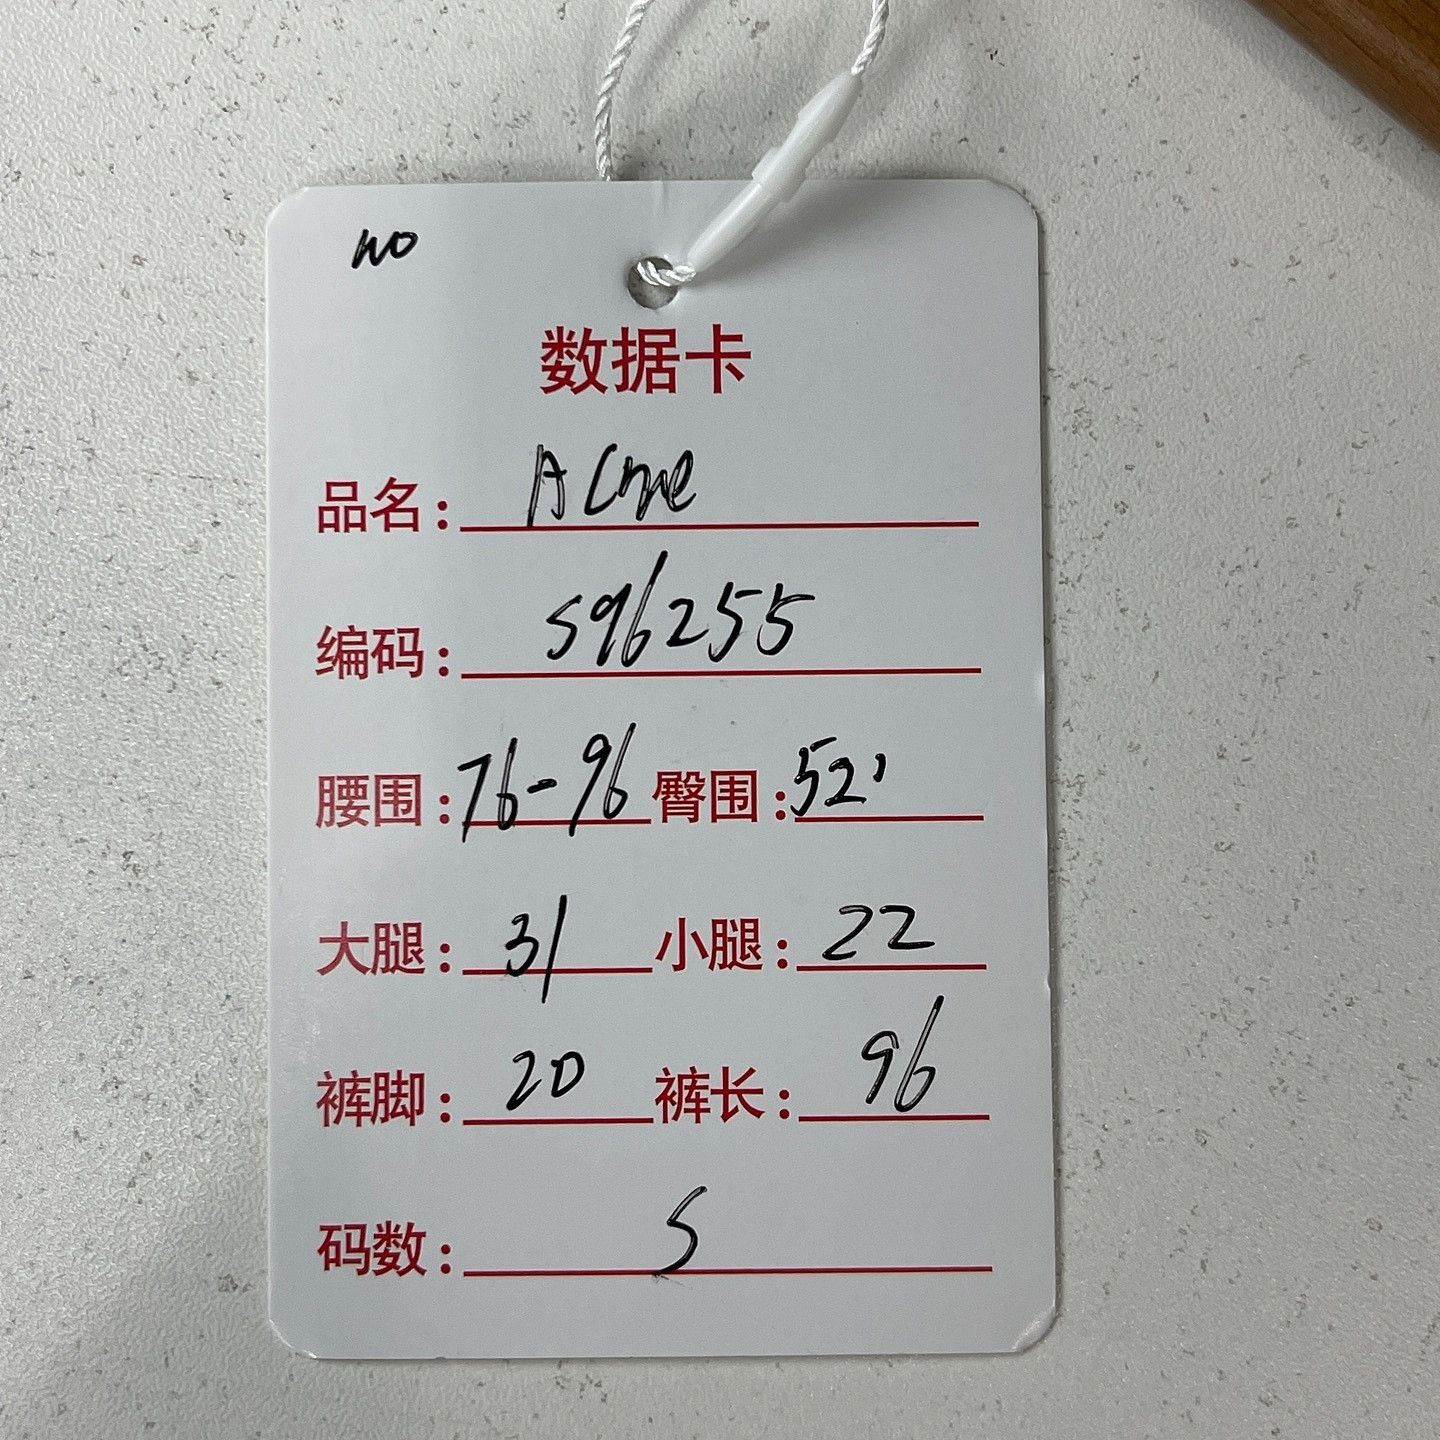 NO
数据卡
品名: Acme
编码: S96255
腰围: 76-96 臀围: 52'
大腿: 31 小腿: 22
裤脚: 20 裤长: 96
码数: S